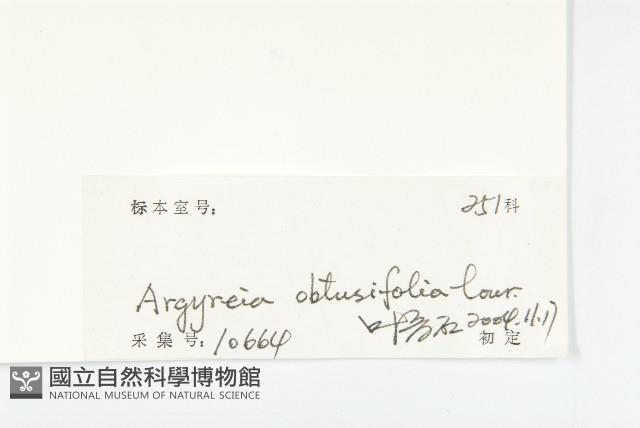 标本室号:
251科
Argyreia obtusifolia Lour.
采集号:10664
叶 2004.11.17
初定
國立自然科學博物館
NATIONAL MUSEUM OF NATURAL SCIENCE